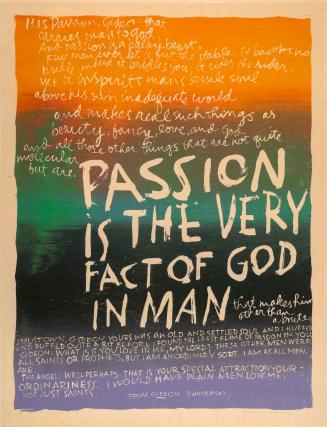 It is Passion, Gideon, that
carries man to God.
And passion is a balky beast.
Few men ever let it out the stable. It brooks no
bridle; indeed it bridles you; it rides the rider.
Yet, it inspirits man's sessile soul
above his own inadequate world
and makes real such things as
beauty, fancy, love, and God
and all those other things that are not quite
molecular
but are.
PASSION
IS THE VERY
FACT OF GOD
IN MAN
that makes him
other than
a brute.
IN MY TOWN, GIDEON, YOURS WAS AN OLD AND SETTLED SOUL AND I HUFFED
AND PUFFED QUITE A BIT BEFORE I FOUND THE LEAST FLAME OF PASSION IN YOU.
GIDEON: WHAT IS IT YOU LOVE IN ME, MY LORD? THESE OTHER MEN WERE
ALL SAINTS OR PROPHETS, BUT I AM ORDINARY SORT. I AM AS ALL MEN
ARE.
THE ANGEL: WELL PERHAPS THAT IS YOUR SPECIAL ATTRACTION, YOUR
ORDINARINESS. I WOULD HAVE PLAIN MEN LOVE ME,
NOT JUST SAINTS.
FROM GIDEON
CHAYEFSKY